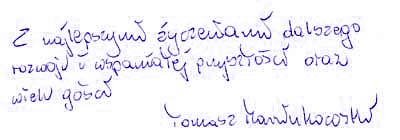 Z najlepszymi życzeniami dalszego
rozwoju i wspaniałej przyszłości oraz
wielu gości
Tomasz